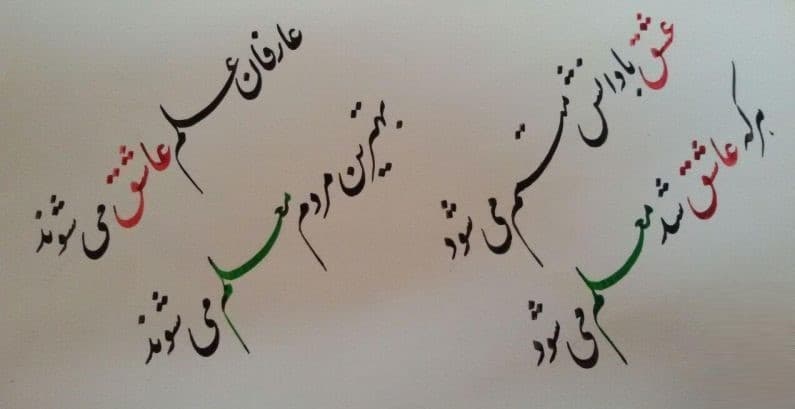 عارفان علم عاشق می شوند
بهترین مردم معلم می شوند
عشق با دانش متمم می شود
هر که عاشق شد معلم می شود